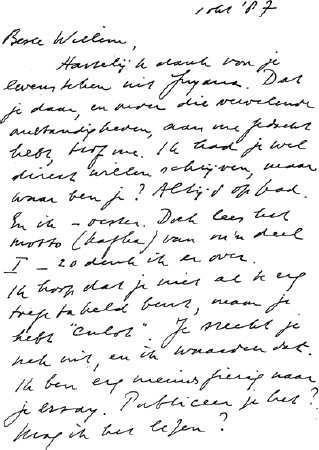 1 okt '87
Beste Willem,
Hartelijk dank voor je
levensteken uit Guyana. Dat
je daar, en onder die vervelende
omstandigheden, aan me gedacht
hebt, trof me. Ik had je wel
direct willen schrijven, maar
waar ben je? Altijd op pad.
En ik – oester. Doch lees het
motto (Kafka) van m'n deel
I – zo denk ik er over.
Ik hoop dat je niet al te erg
toegetakeld bent, maar je
hebt "culot". Je steekt je
nek uit, en ik waardeer dat.
Ik ben erg nieuwsgierig naar
je essay. Publiceer je het?
Mag ik het lezen?